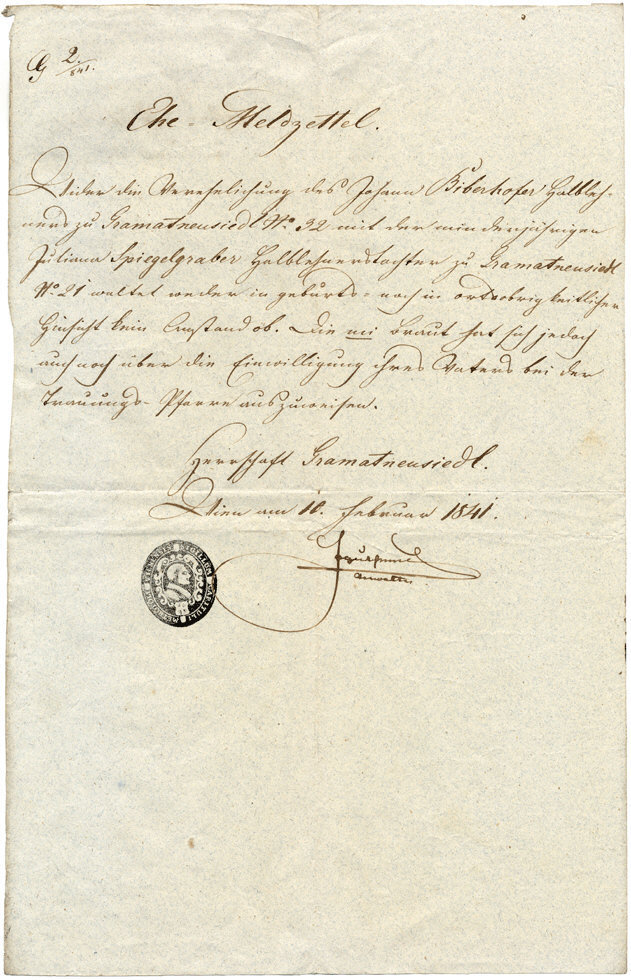 G 2/841.
Ehe-Meldzettel.
Wider die Verehelichung des Johann Biberhofer Halbleh-
ners zu Gramatneusiedl No 32 mit der minderjährigen
Juliana Spiegelgraber Halblehnerstochter zu Gramatneusiedl
No 21 waltet weder in geburts- noch in ortsobrigkeitlicher
Hinsicht kein Anstand ob. Die Braut hat sich jedoch
auch noch über die Einwilligung ihres Vaters bei der
Trauungs-Pfarre auszuweisen.
Herrschaft Gramatneusiedl.
Wien am 10. Februar 1841.
SIGILLUM CAPITULI METROPOL VIENNENSIS